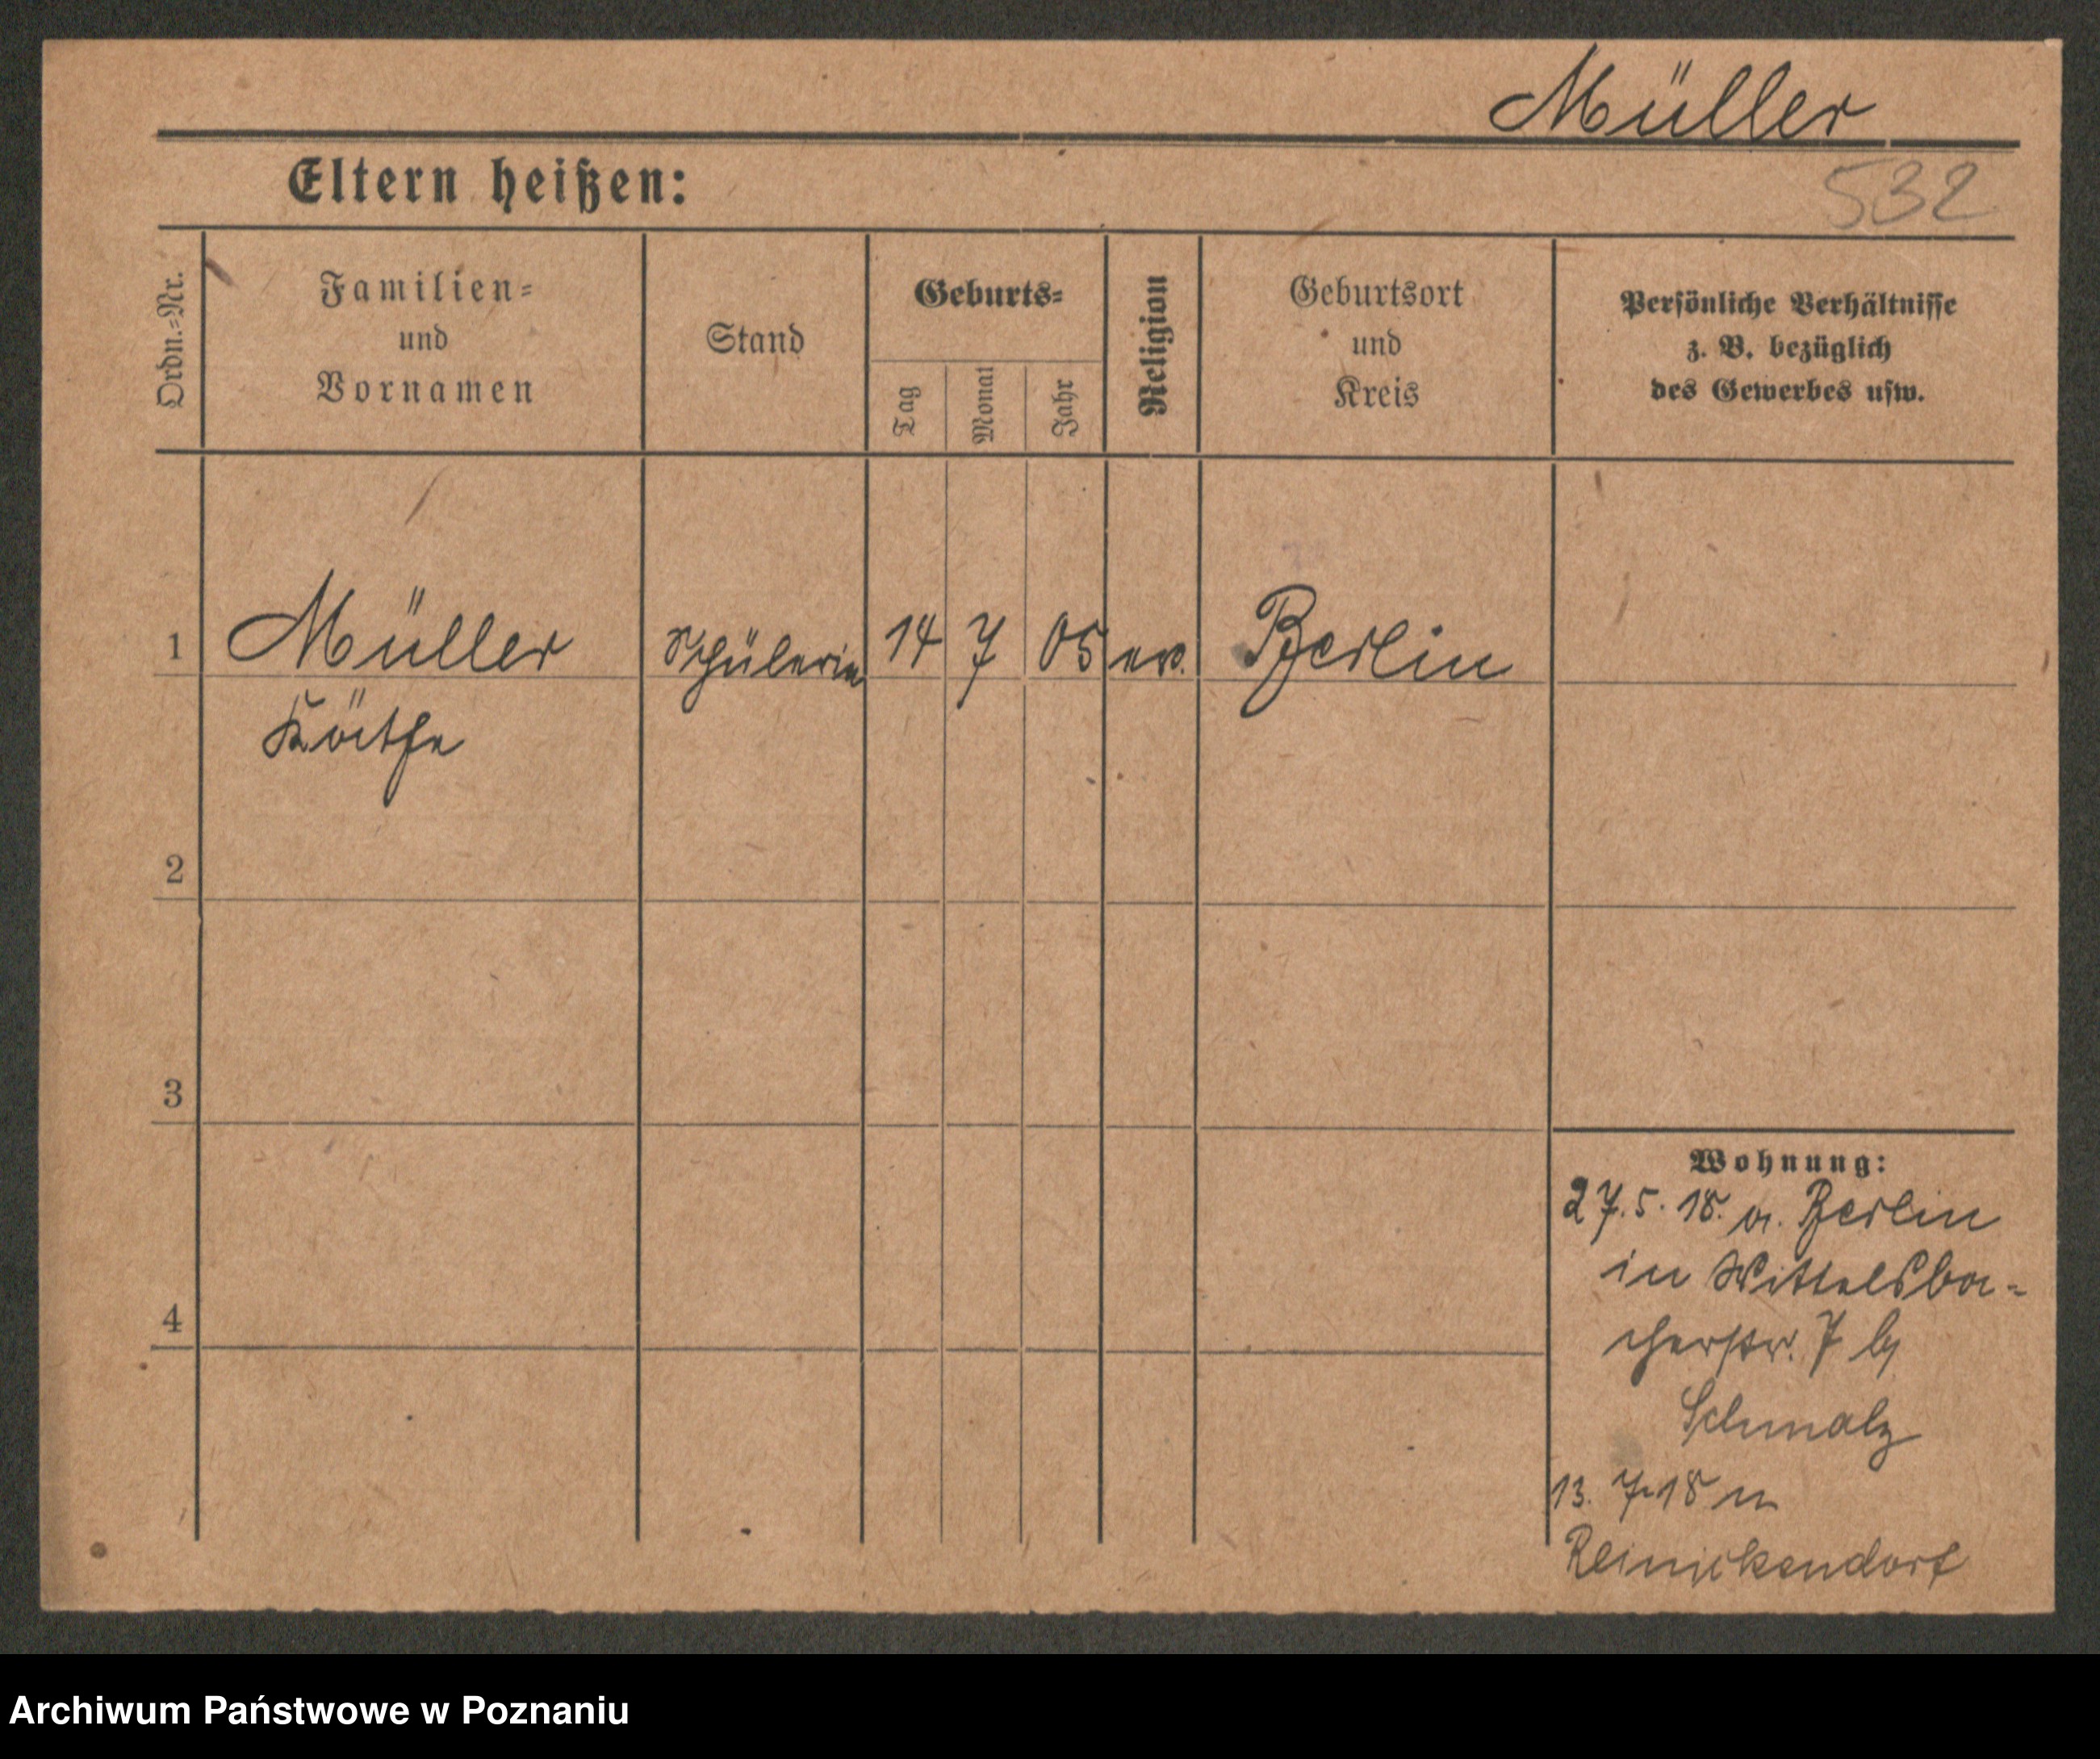 Müller
Eltern heißen:
532
Ordn.=Nr.
Familien=
und
Vornamen
Stand
Geburts=
Tag
Monat
Jahr
Religion
Geburtsort
und
Kreis
Persönliche Verhältnisse
z. B. bezüglich
des Gewerbes usw.
1 Müller Schülerin 14 7 05 ev. Berlin
Käthe
2
3
4
Wohnung:
27.5.18. a. Berlin
in Wittelsba-
cherstr. 7 b/
Schmalz
13. 7.18 n
Reinickendorf
Archiwum Państwowe w Poznaniu